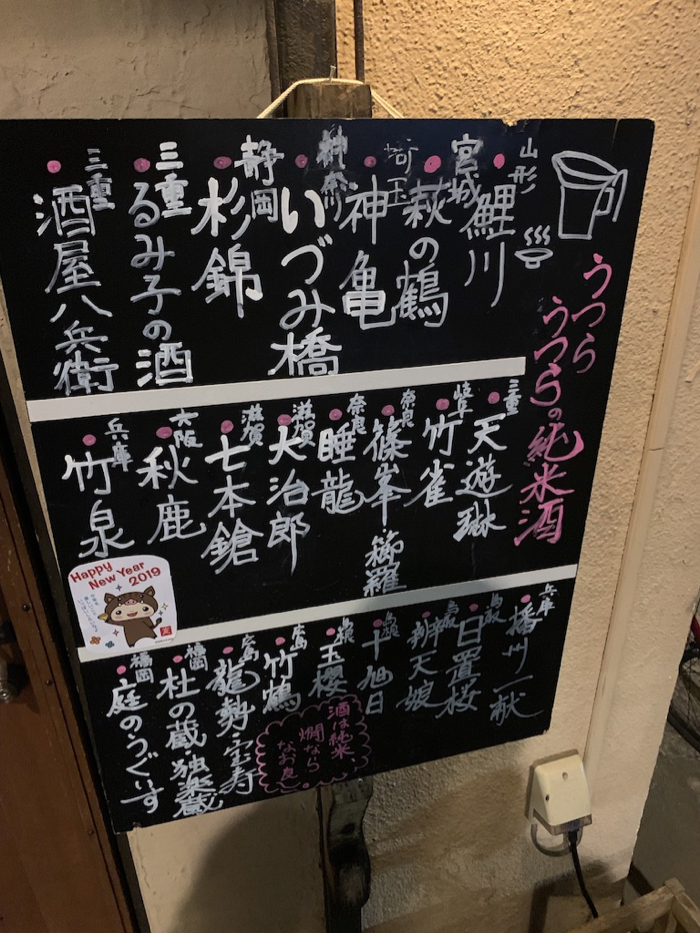 うつら
うつらの純米酒
山形
鯉川
宮城
萩の鶴
埼玉
神亀
神奈川
いづみ橋
静岡
杉錦
三重
るみ子の酒
三重
酒屋八兵衛
三重
天遊琳
岐阜
竹雀
奈良
篠峯 櫛羅
奈良
睡龍
滋賀
大治郎
滋賀
七本鎗
大阪
秋鹿
兵庫
竹泉
兵庫
播州一献
鳥取
日置桜
鳥取
辨天娘
島根
十旭日
島根
玉櫻
広島
竹鶴
広島
龍勢・宝寿
福岡
杜の蔵・独楽蔵
福岡
庭のうぐいす
酒は純米、
燗なら
なお良
Happy
New Year
2019